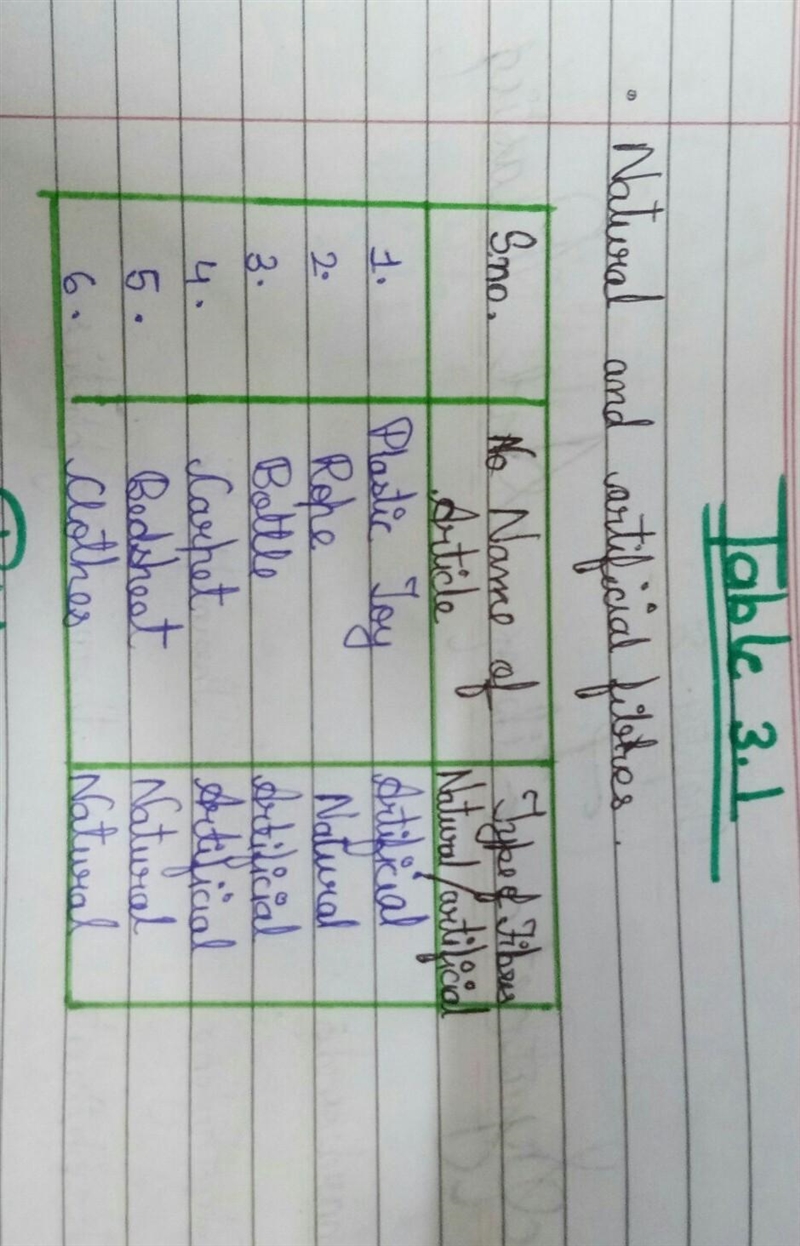 Table 3.1
• Natural and artificial fibres.
S.no. No Name of Type of Fibres
Article Natural/artificial
1. Plastic Toy Artificial
2. Rope Natural
3. Bottle Artificial
4. Carpet Artificial
5. Bedsheet Natural
6. Clothes Natural